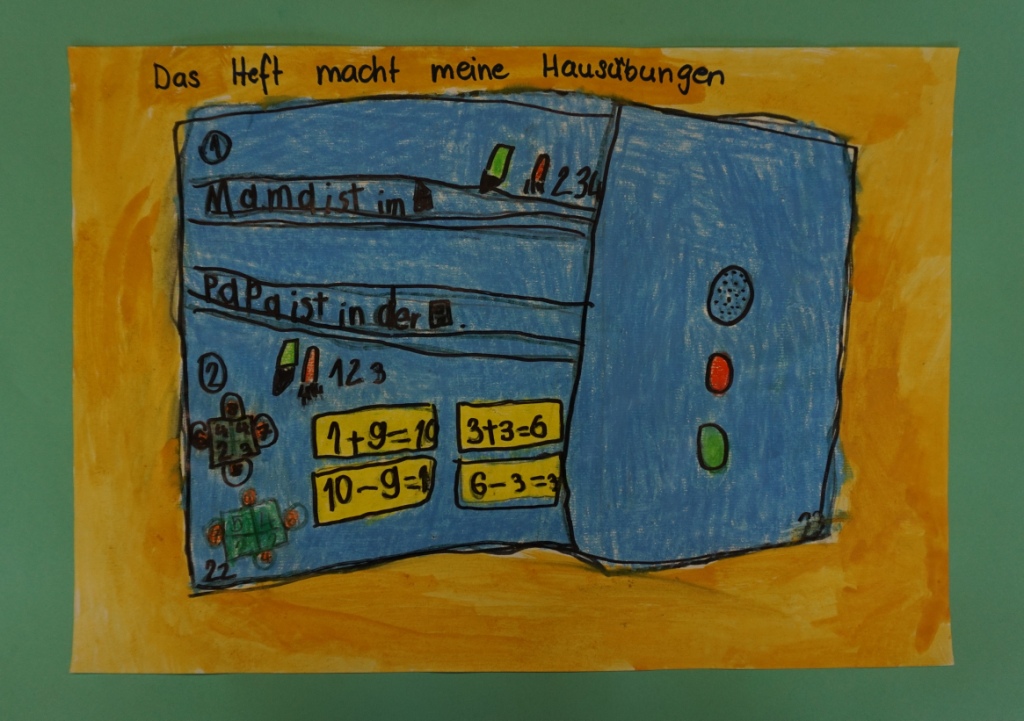 Das Heft macht meine Hausübungen
1
234
Mama ist im
PaPa ist in der .
2
123
1+9=10
3+3=6
10-9=1
6-3=3
22